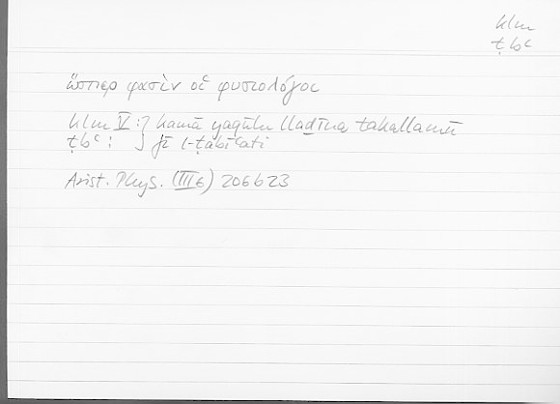 klm
ṭbʿ
ὥσπερ φασὶν οἱ φυσιολόγοι
klm V : } kamā yaqūlu lladīna takallamū
ṭbʿ : } fī l-ṭabīʿati
Arist. Phys. (III 6) 206b23